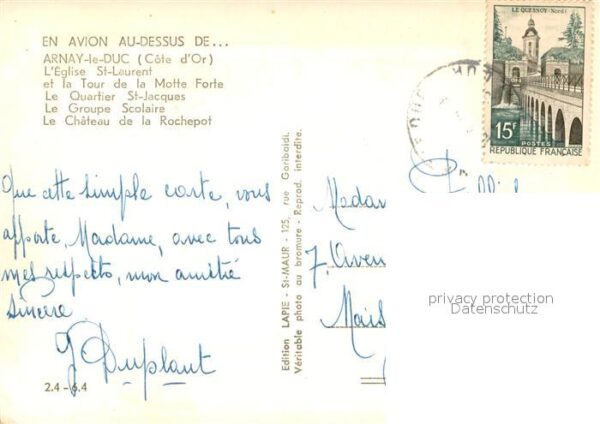 EN AVION AU-DESSUS DE...
ARNAY-le-DUC (Côte d'Or)
L'Église St-Laurent
et la Tour de la Motte Forte
Le Quartier St-Jacques
Le Groupe Scolaire
Le Château de la Rochepot
LE QUESNOY-Nord
15F
POSTES
REPUBLIQUE FRANÇAISE
Que cette simple carte, vous
apporte, Madame, avec tous
mes respects, mon amitié
sincère
J Duplant
2.4 - 6.4
Edition LAPIE - St-MAUR - 125, rue Garibaldi.
Véritable photo au bromure - Reprod. interdite.
Madam
7, Aven
Mais
privacy protection
Datenschutz